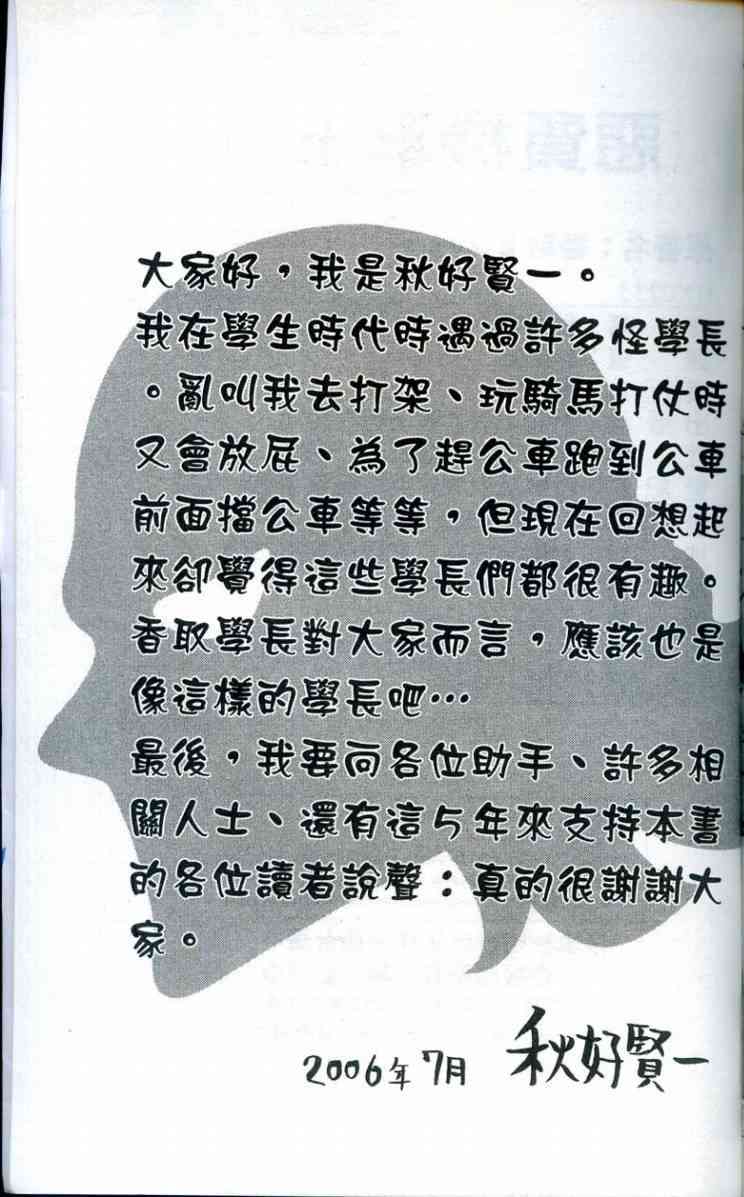 大家好，我是秋好賢一。
我在學生時代時遇過許多怪學長
。亂叫我去打架、玩騎馬打仗時
又會放屁、為了趕公車跑到公車
前面擋公車等等，但現在回想起
來卻覺得這些學長們都很有趣。
香取學長對大家而言，應該也是
像這樣的學長吧…
最後，我要向各位助手、許多相
關人士、還有這5年來支持本書
的各位讀者說聲：真的很謝謝大
家。
2006年7月 秋好賢一